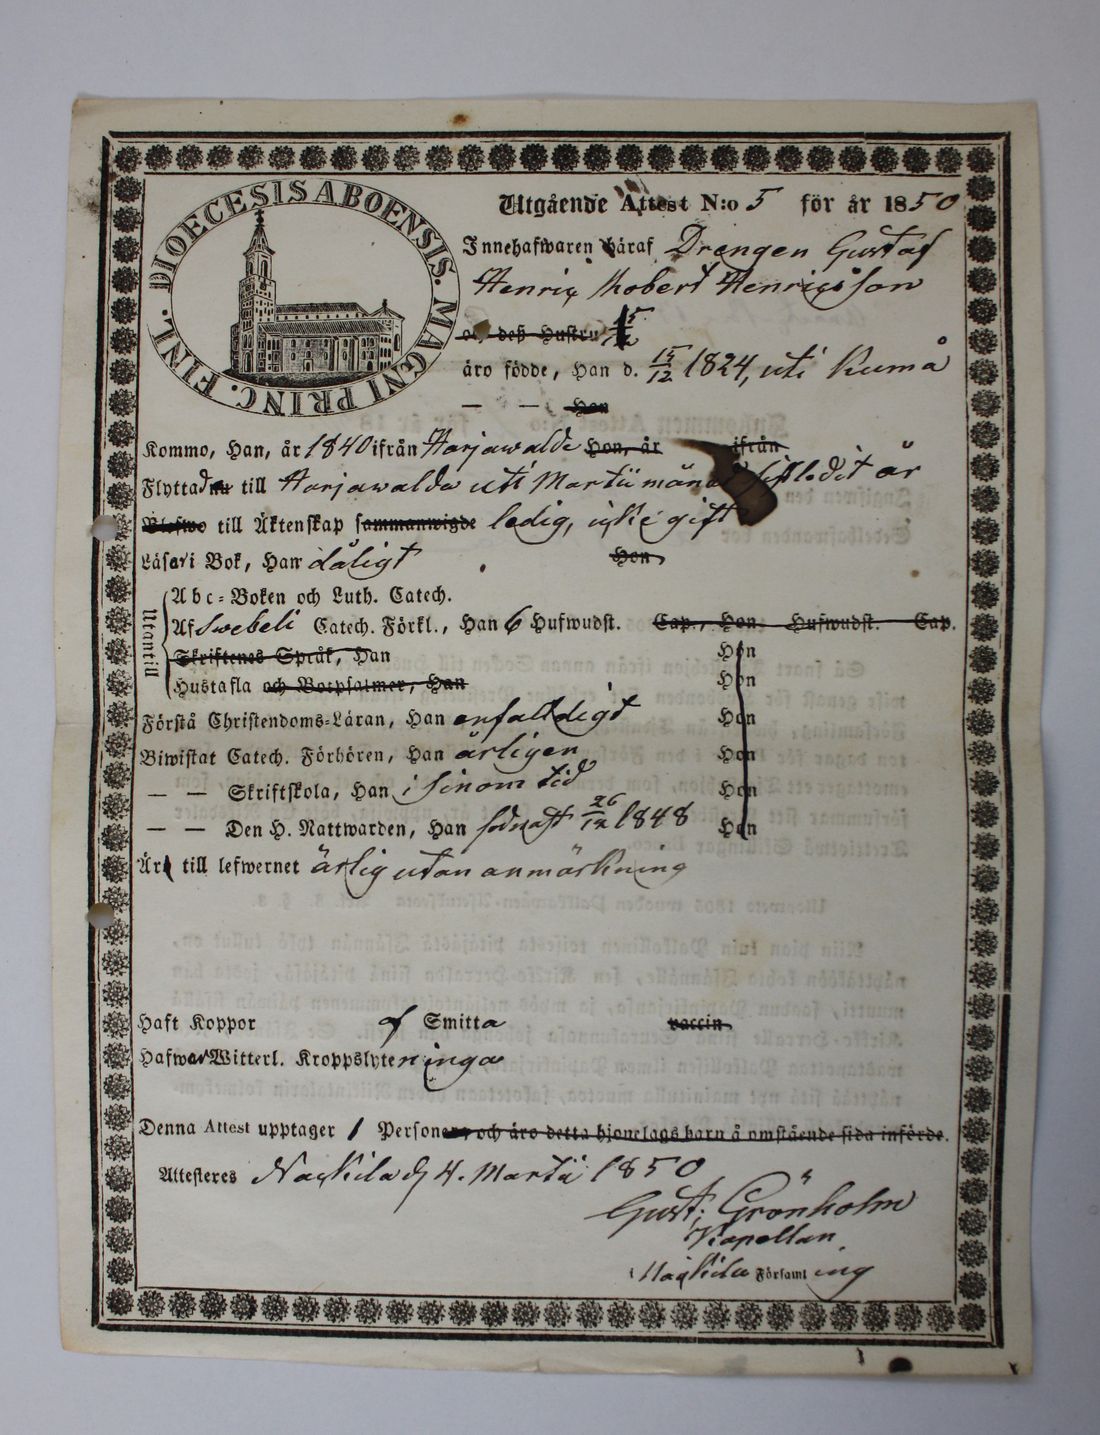 DIOECESIS ABOENSIS. MAGNI PRINC. FINL.
Utgående Attest N:o 5 för år 1850
Innehafwaren häraf Drengen Gustaf
Henric Robert Henricsson
och deß Hustru
äro födde, Han d. 15/12 1824, uti Kumå
— — Hon
Kommo, Han, år 1840 ifrån Harjawalda Hon, år ifrån
Flyttad till Harjawalda uti Martii månad sistledit år
till Äktenskap sammanwigde ledig, icke gift
Läsa i Bok, Han dåligt Hon
Utantill
Abc-Boken och Luth. Catech.
Af Swebeli Catech. Förkl., Han 6 Hufwudst. Cap., Hon Hufwudst. Cap.
Skriftenes Språk, Han Hon
Hustafla och Botpsalmer, Han Hon
Förstå Christendoms-Läran, Han enfaldigt Hon
Biwistat Catech. Förhören, Han årligen Hon
— — Skriftskola, Han i sinom tid Hon
— — Den H. Nattwarden, Han sednast 26/12 1848 Hon
Är till lefwernet ärlig utan anmärkning
Haft Koppor af Smitta vaccin
Hafwa Witterl. Kroppslyte ninga
Denna Attest upptager 1 Personer, och äro detta hjonelags barn å omstående sida införde.
Attesteres Nackila d 4. Martii 1850
Gust; Grönholm
Kapellan
i Nackila Församling